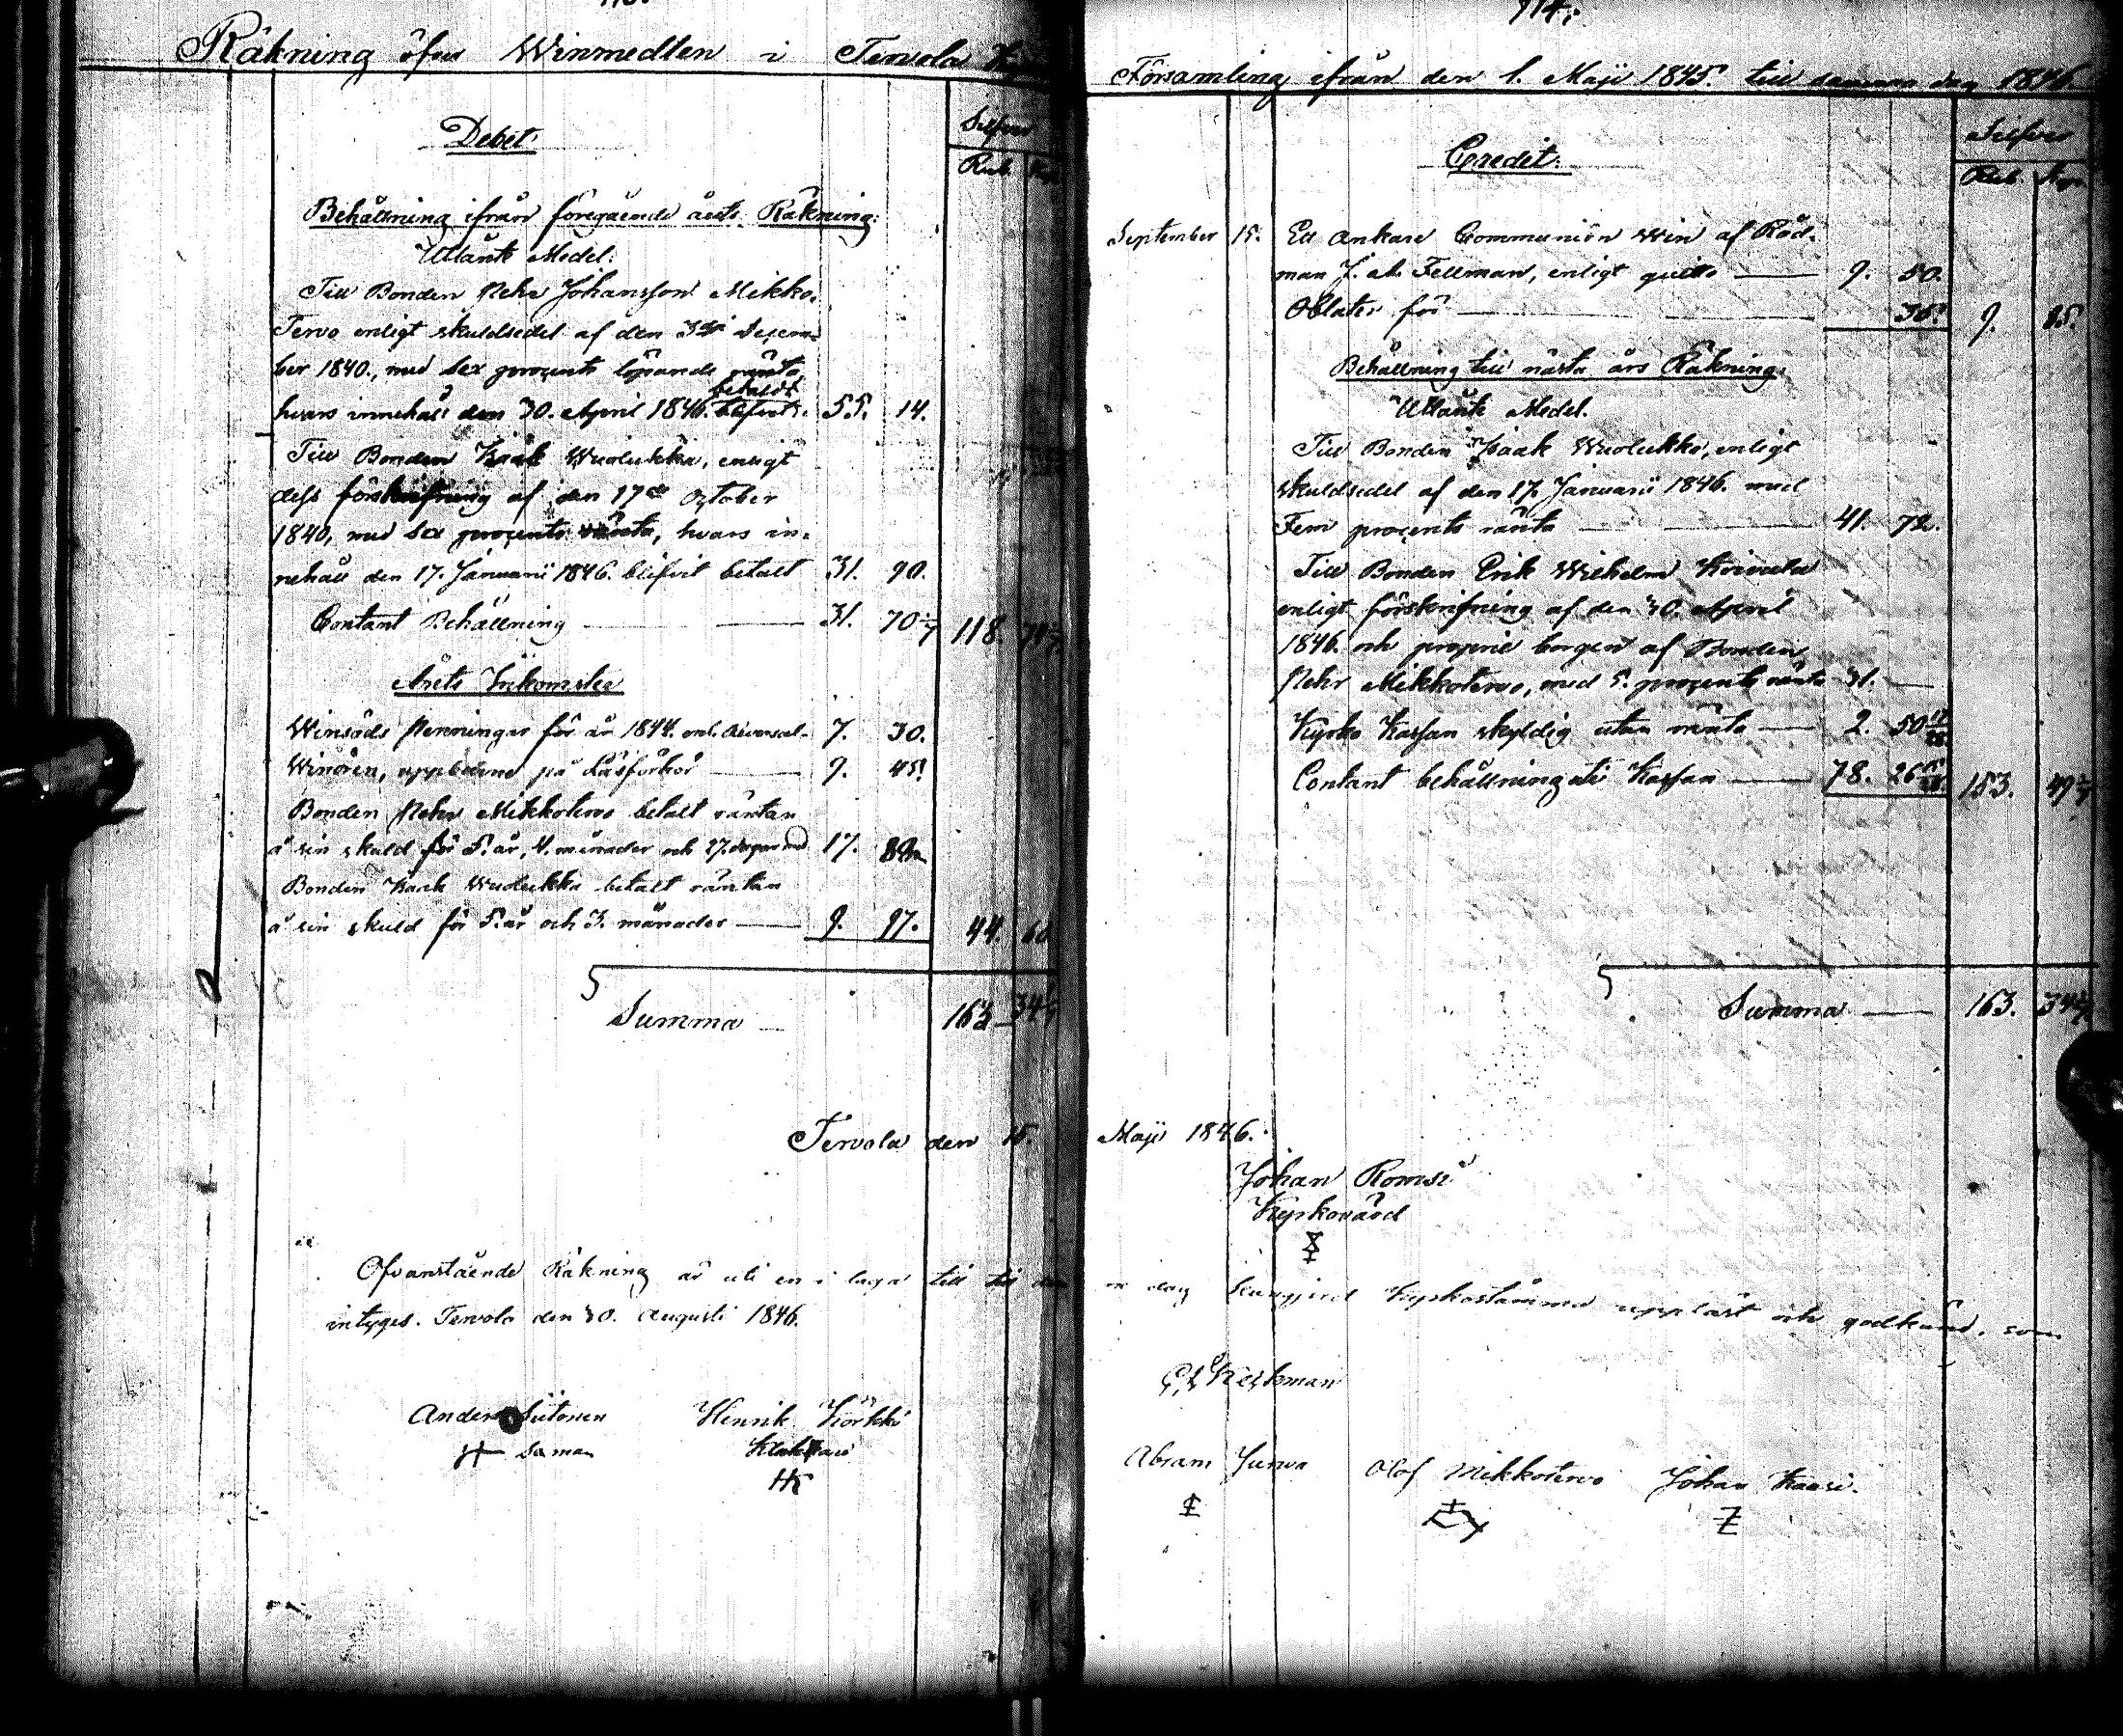 114.
Räkning öfver Winmedlen i Tervola
Församling ifrån den 1. Maji 1845. till samma dag 1846.
Debet.
Silfver
Rub. Kop.
Behållning ifrån föregående årets Räkning:
Utlånte Medel:
Till Bonden Pehr Johansson Mikko-
Tervo enligt skuldsedel af den 3die Decem-
ber 1840., med sex procents löpande ränta
betaldt
hvars innehåll den 30. April 1846. blifvit. 55. 14.
Till Bonden Isaak Wuolukka, enligt
dess förskrifning af den 17de October
1840, med sex procents ränta, hvars in-
nehåll den 17. Januarii 1846. blifvit betalt 31. 90.
Contant Behållning 31. 70 118. 74
Årets Inkomster
Winsåds Penningar för år 1844. enl. 7. 30.
Winören, uppburne på Läsförhör 9. 45.
Bonden Pehr Mikkotervo betalt räntan
å sin skuld för 5. år, 4. månader och 27. dagar med 17. 88
Bonden Isaak Wuolukka betalt räntan
å sin skuld för 5. år och 3. månader 9. 97. 44. 60
Summa 163. 34
Tervola den 15.
Ofvanstående Räkning är uti en i laga tid
intyges. Tervola den 30. Augusti 1846.
Anders Siitonen Henrik Körkkö
Saman
HK
Credit.
Silfver
Rub. Kop.
September 15. Ett ankare Communion Win af Råd-
man J. ab. Fellman, enligt quitto 9. 50.
Oblater för 35. 9. 85.
Behållning till nästa års Räkning.
Utlånte Medel.
Till Bonden Isaak Wuolukka, enligt
skuldsedel af den 17. Januarii 1846. med
Fem procents ränta 41. 72.
Till Bonden Erik Wilhelm Koivula
enligt förskrifning af den 30. April
1846. och proprie borgen af Bonden
Pehr Mikkotervo, med 5. procents ränta 31.
Kyrko Kassan skyldig utan ränta 2. 50
Contant behållning uti Kassan 78. 26 153. 49
Summa 163. 34
Maji 1846.
Johan Romsi
Kyrkovärd
dag kungjord Kyrkostämma uppläst och godkänd, som
Keckman
Abram Junva Olof Mikkotervo Johan Kaari.